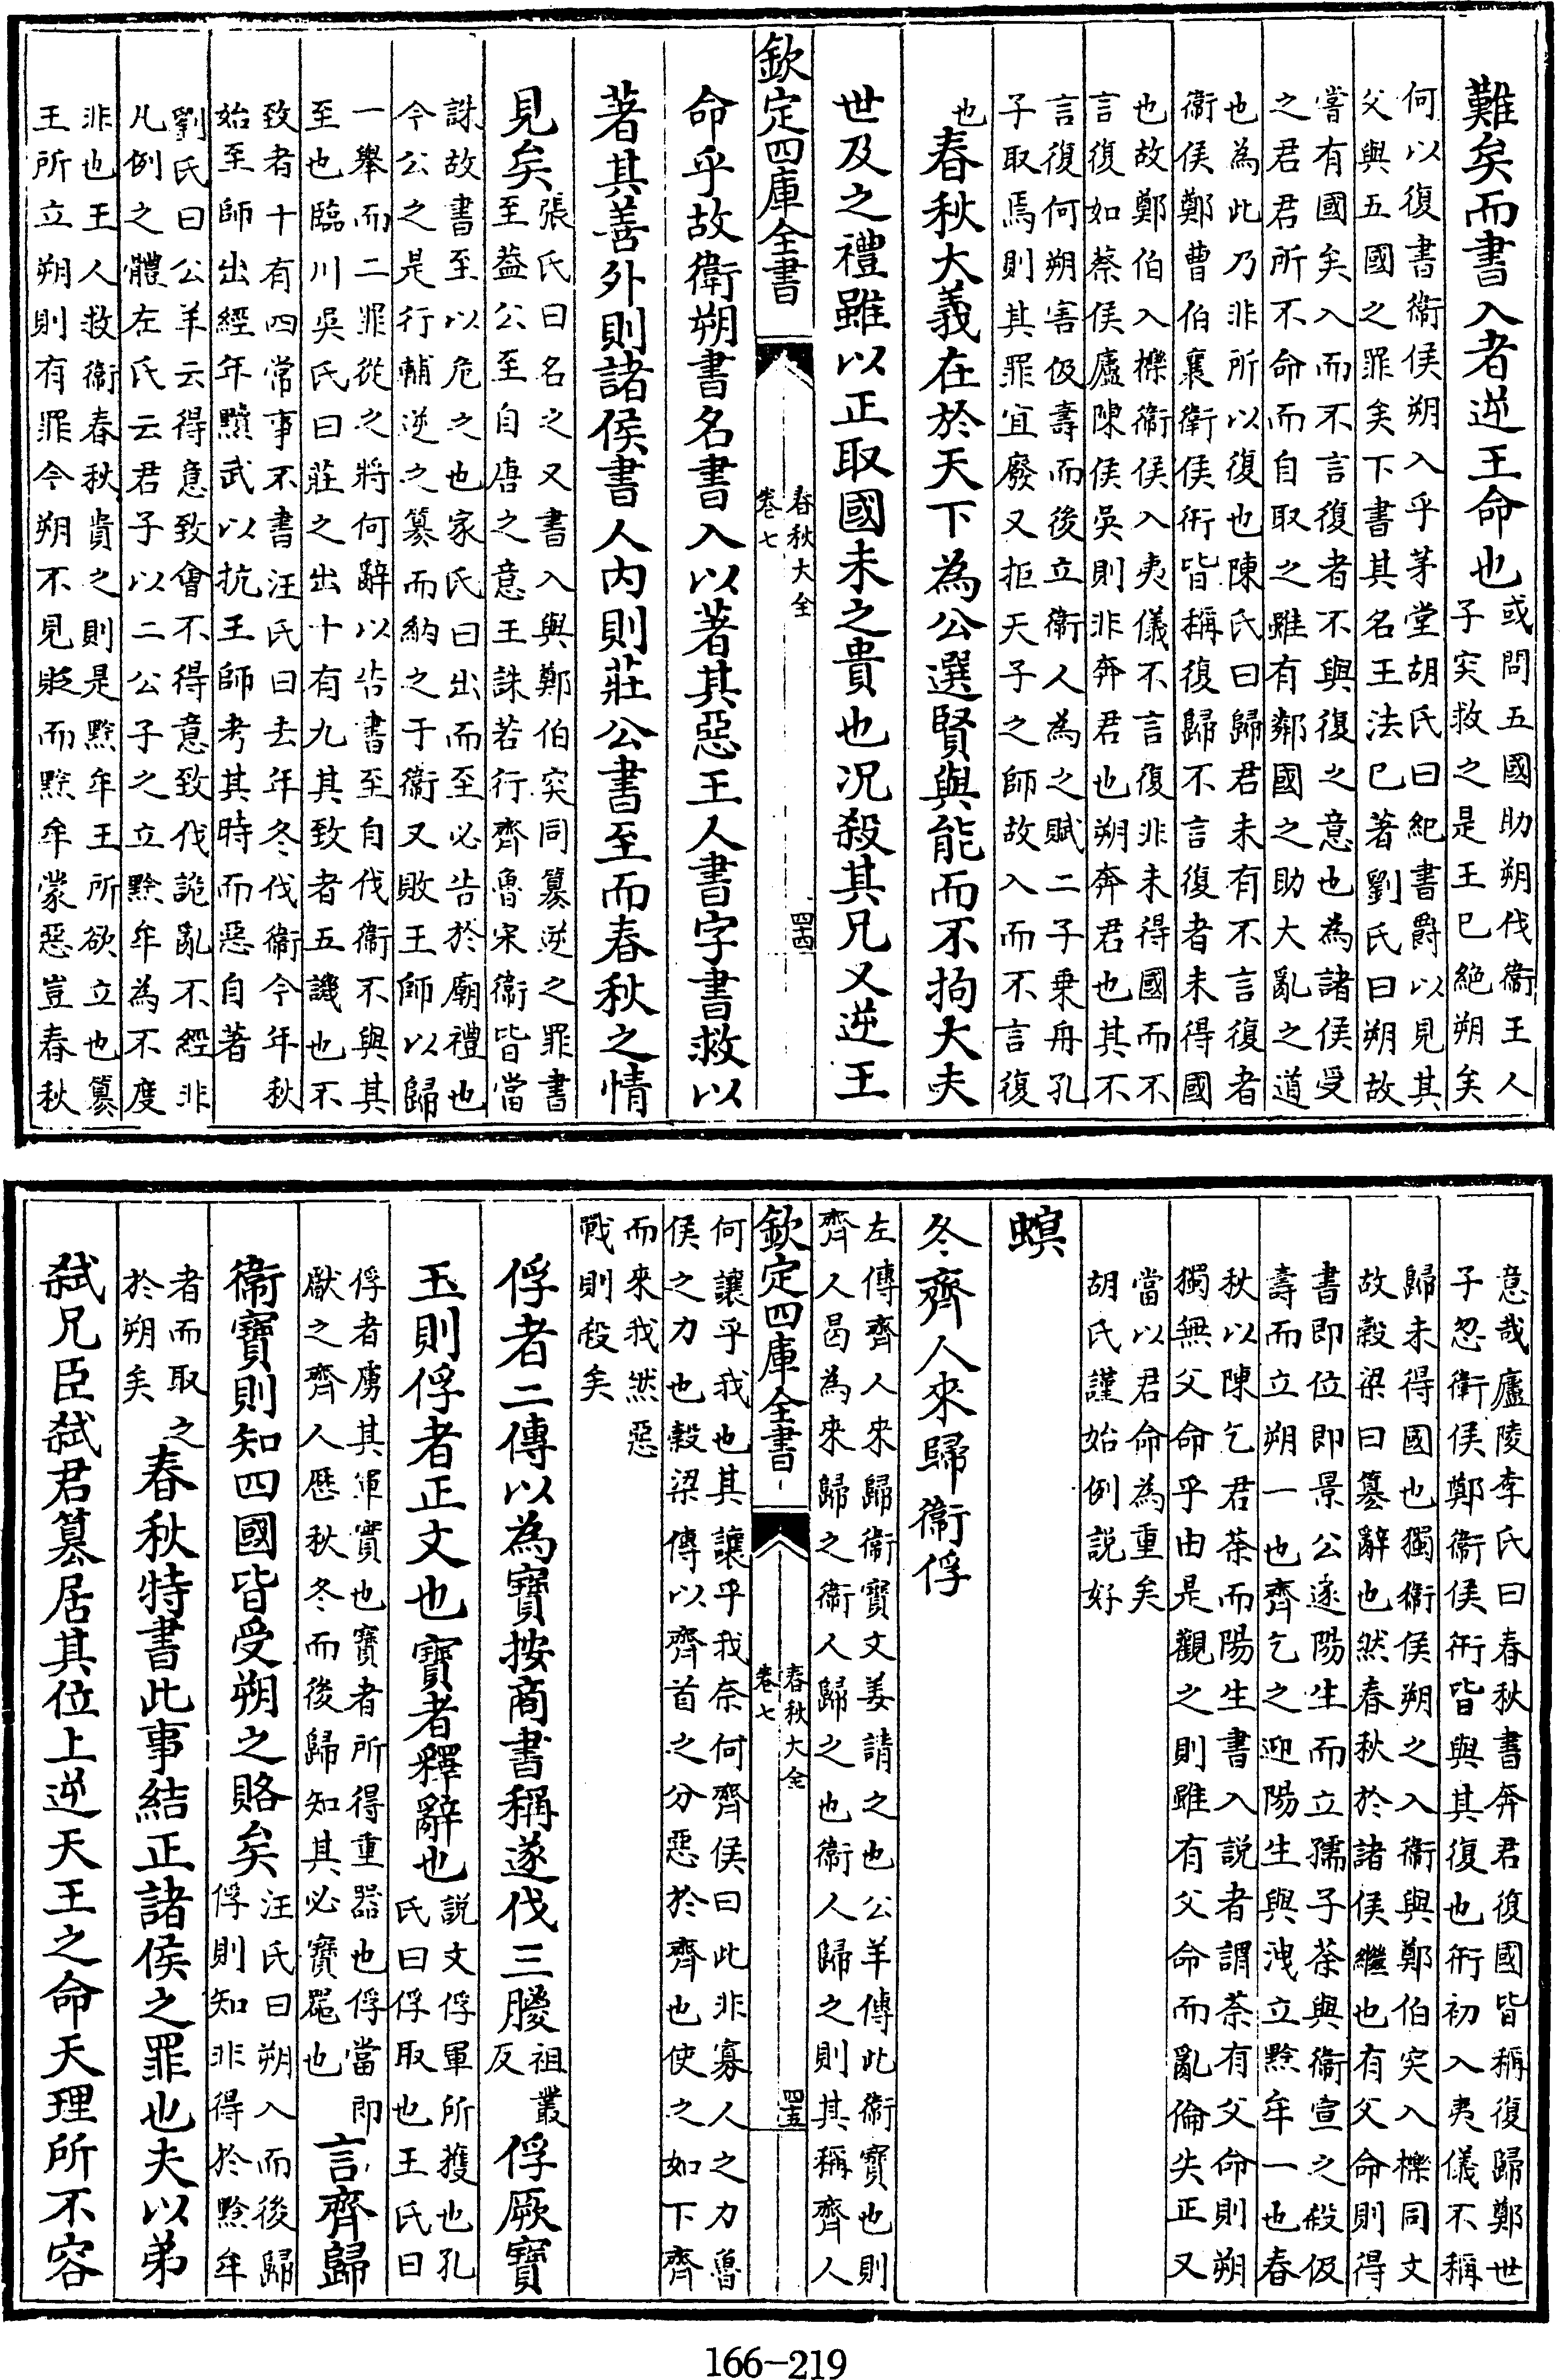 難矣而書入者逆王命也或問五國助朔伐衞王人
子突救之是王已絶朔矣
何以復書衞侯朔入乎茅堂胡氏曰紀書爵以見其
父與五國之罪矣下書其名王法已著劉氏曰朔故
嘗有國矣入而不言復者不與復之意也為諸侯受
之君君所不命而自取之雖有鄰國之助大亂之道
也為此乃非所以復也陳氏曰歸君未有不言復者
衞侯鄭曹伯襄衞侯衎皆稱復歸不言復者未得國
也故鄭伯入櫟衞侯入夷儀不言復非未得國而不
言復如蔡侯廬陳侯吳則非奔君也朔奔君也其不
言復何朔害伋壽而後立衞人為之賦二子乗舟孔
子取焉則其罪宜廢又拒天子之師故入而不言復
也春秋大義在於天下為公選賢與能而不拘大夫
世及之禮雖以正取國未之貴也况殺其兄又逆王
欽定四庫全書 春秋大全 卷七 四十四
命乎故衞朔書名書入以著其惡王人書字書救以
著其善外則諸侯書人内則莊公書至而春秋之情
見矣張氏曰名之又書入與鄭伯突同篡逆之罪書
至葢公至自唐之意王誅若行齊魯宋衞皆當
誅故書至以危之也家氏曰出而至必告於廟禮也
今公之是行輔逆之篡而納之于衞又敗王師以歸
一舉而二罪從之將何辭以告書至自伐衞不與其
至也臨川吳氏曰莊之出十有九其致者五譏也不
致者十有四常事不書汪氏曰去年冬伐衞今年秋
始至師出經年黷武以抗王師考其時而惡自著
劉氏曰公羊云得意致會不得意致伐詭亂不經非
凡例之體左氏云君子以二公子之立黔牟為不度
非也王人救衞春秋貴之則是黔牟王所欲立也篡
王所立朔則有罪今朔不見貶而黔牟蒙惡豈春秋
意哉廬陵李氏曰春秋書奔君復國皆稱復歸鄭世
子忽衞侯鄭衞侯衎皆與其復也衎初入夷儀不稱
歸未得國也獨衞侯朔之入衞與鄭伯突入櫟同文
故榖梁曰篡辭也然春秋於諸侯繼也有父命則得
書即位即景公遂陽生而立孺子荼與衞宣之殺伋
壽而立朔一也齊乞之迎陽生與洩立黔牟一也春
秋以陳乞君荼而陽生書入説者謂荼有父命則朔
獨無父命乎由是觀之則雖有父命而亂倫失正又
當以君命為重矣
胡氏謹始例説好
螟
冬齊人來歸衞俘
左傳齊人來歸衞寶文姜請之也公羊傳此衞寶也則
齊人曷為來歸之衞人歸之也衞人歸之則其稱齊人
欽定四庫全書 春秋大全 卷七 四十五
何讓乎我也其讓乎我奈何齊侯曰此非寡人之力魯
侯之力也榖梁傳以齊首之分惡於齊也使之如下齊
而來我然惡
戰則殺矣
俘者二傳以為寶按商書稱遂伐三朡祖叢
反俘厥寶
玉則俘者正文也寶者釋辭也説文俘軍所獲也孔
氏曰俘取也王氏曰
俘者虜其軍實也寶者所得重器也俘當即
厭之齊人歷秋冬而後歸知其必寶器也言齊歸
衞寶則知四國皆受朔之賂矣汪氏曰朔入而後歸
俘則知非得於黔牟
者而取之
於朔矣春秋特書此事結正諸侯之罪也夫以弟
弑兄臣弑君篡居其位上逆天王之命天理所不容
166-219